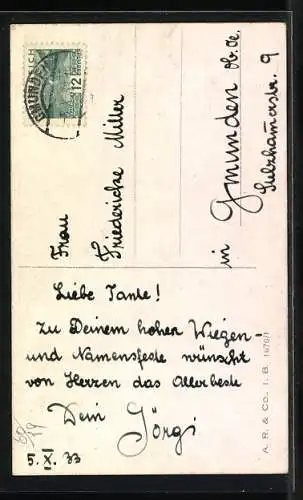 Liebe Tante!
Zu Deinem hohen Wiegen-
und Namensfeste wünscht
von Herzen das Allerbeste
Dein Görgi
5. X. 33
Frau
Friedericke Miller
in Gmunden ob. oe.
Sulzhamerstr. 9
A. R. & Co. I. B. 1670/1
12
GMUNDEN